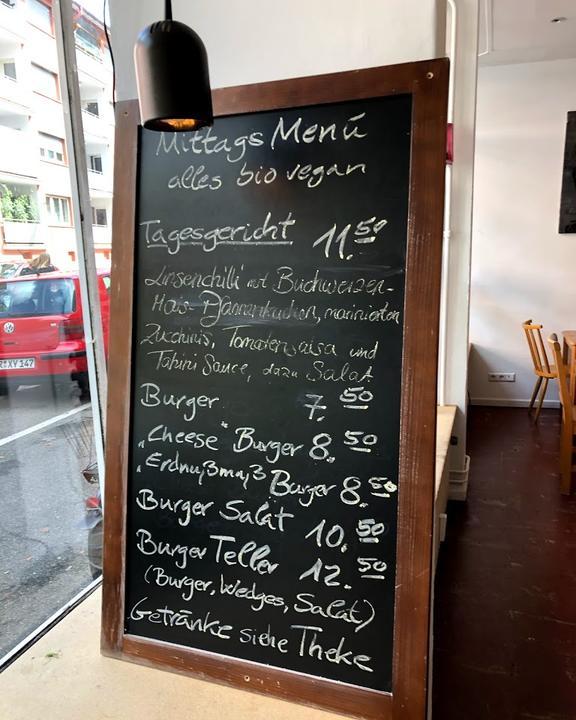 Mittags Menü
alles bio vegan
Tagesgericht 11.50
Linsenchilli mit Buchweizen-
Mais-Pfannenkuchen, marinierten
Zucchinis, Tomatensalsa und
Tahini Sauce, dazu Salat
Burger 7.50
„Cheese" Burger 8.50
„Erdnußmuß Burger 8.50
Burger Salat 10.50
Burger Teller 12.50
(Burger, Wedges, Salat)
Getränke siehe Theke
XY 147